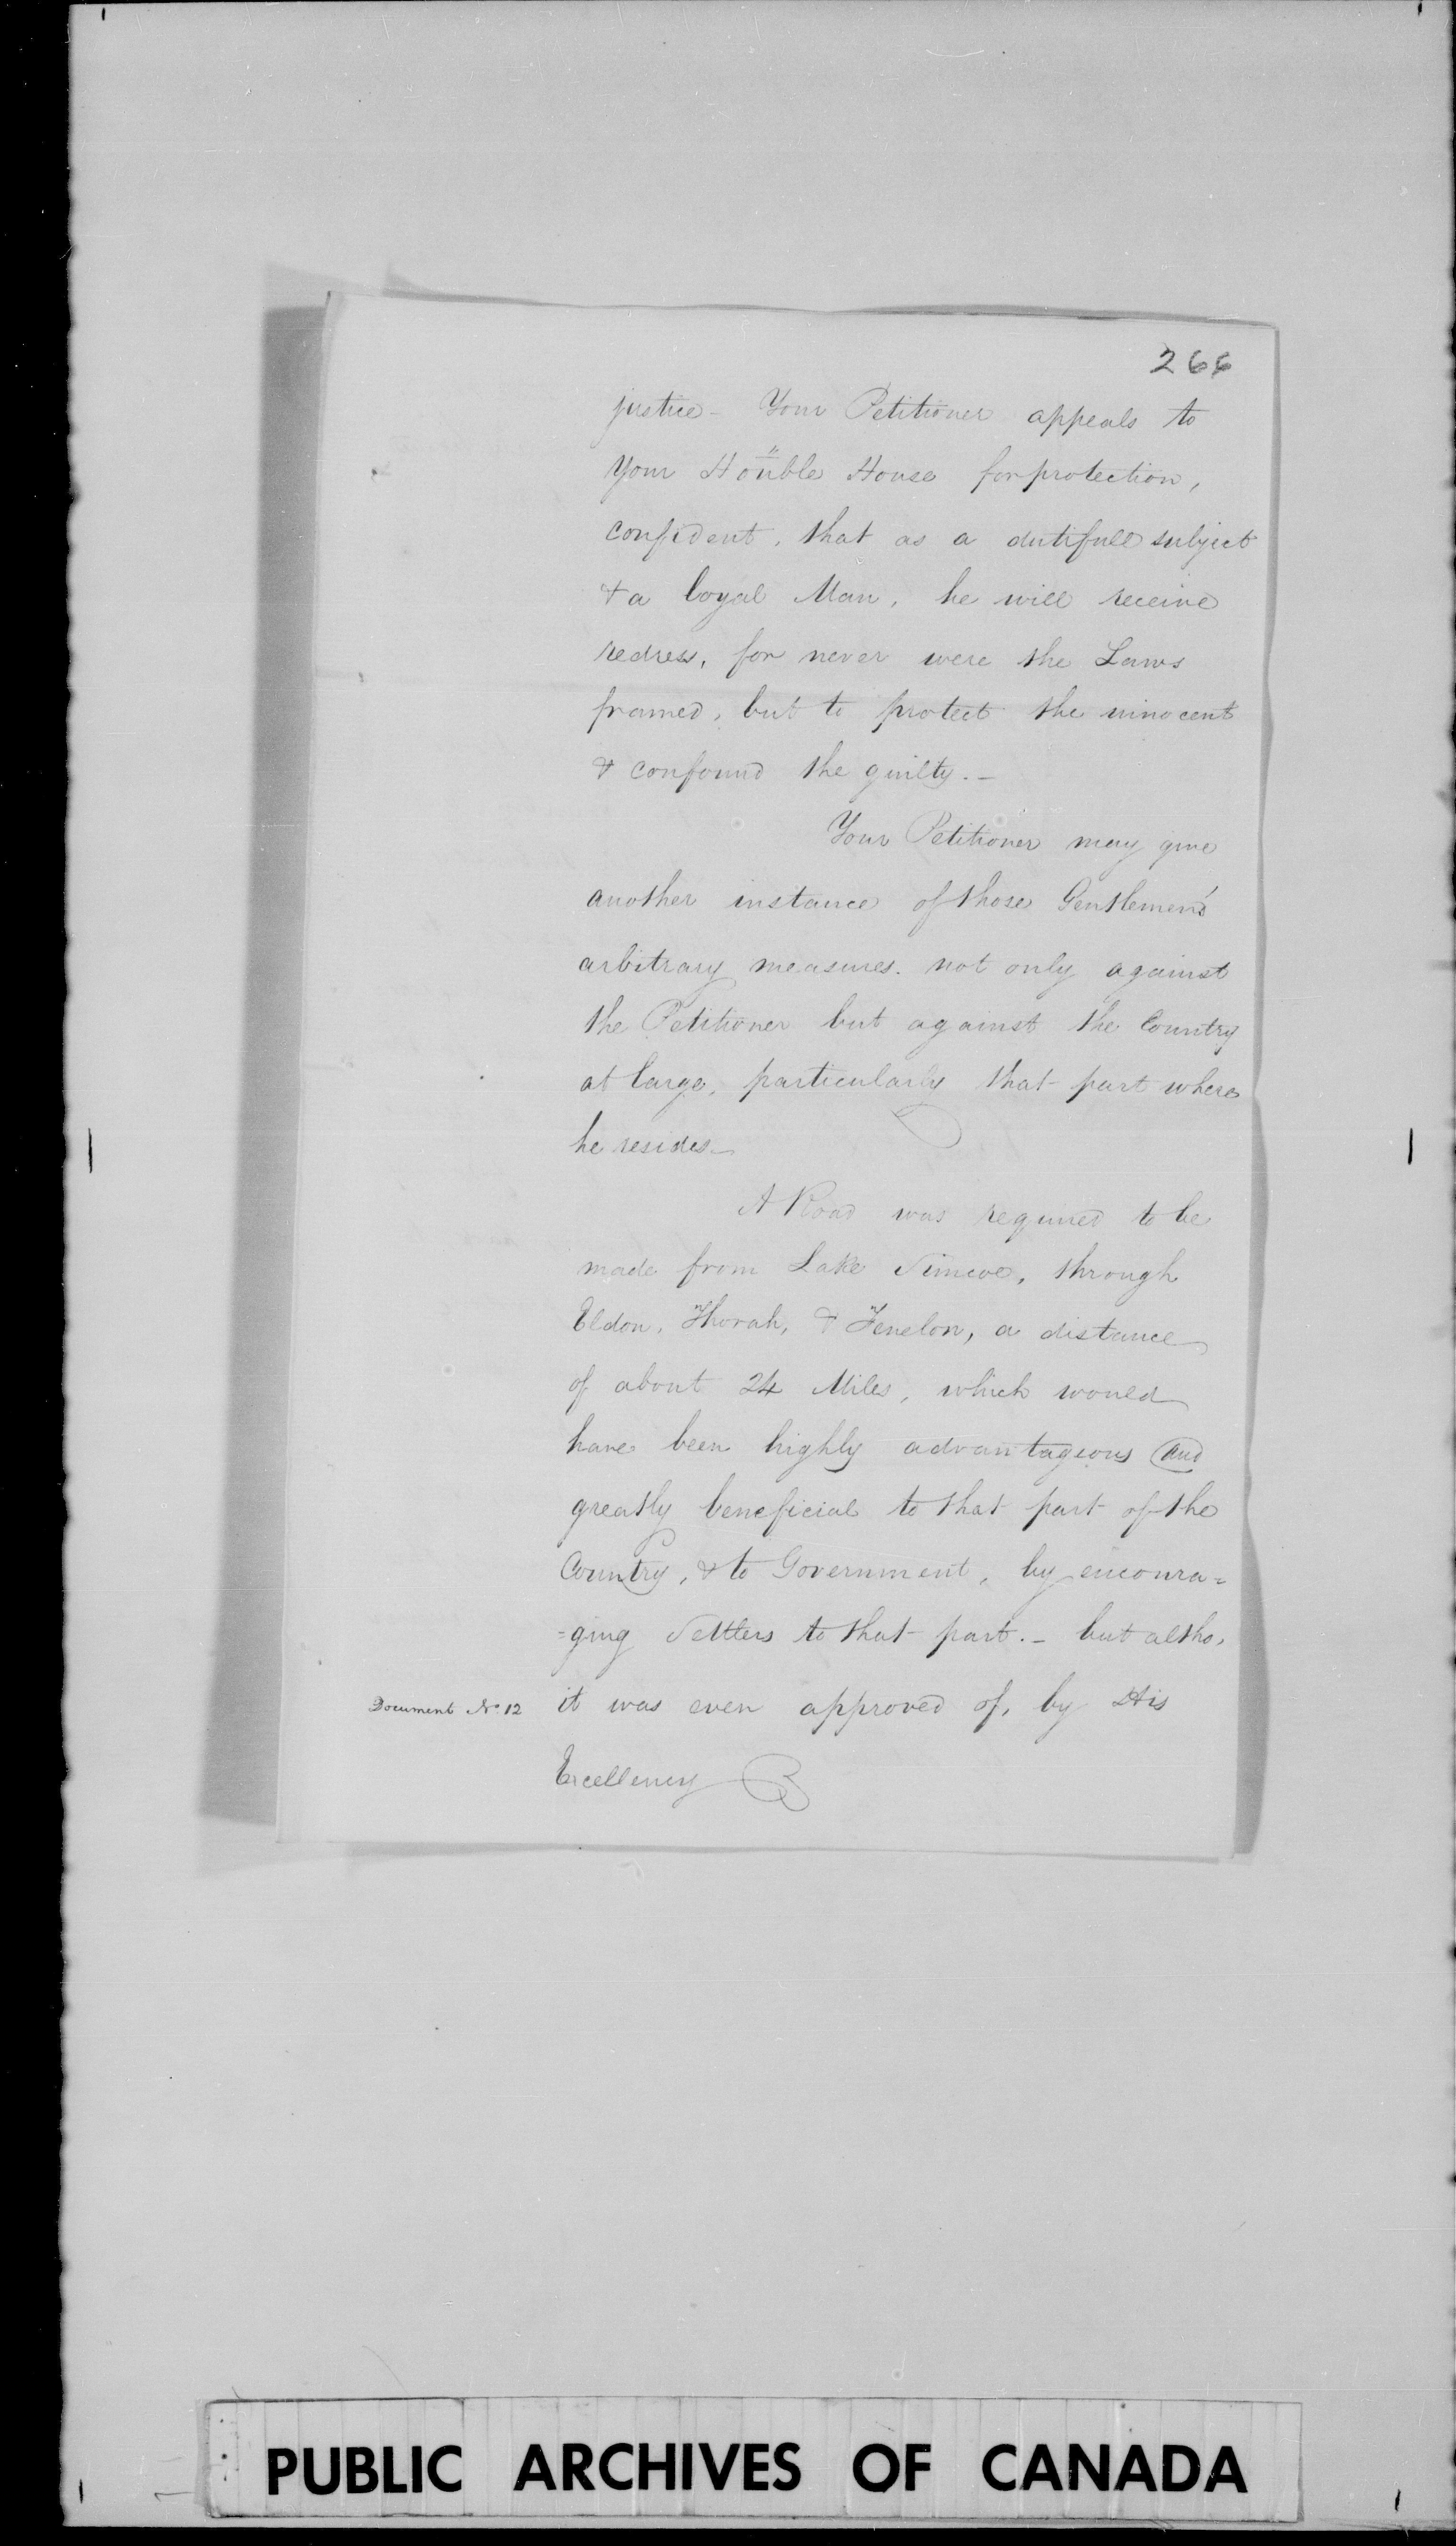 266
justice - Your Petitioner appeals to
Your Honble House for protection,
confident, that as a dutifull subject
& a loyal Man, he will receive
redress, for never were the Laws
framed, but to protect the innocent
& confound the guilty. -
Your Petitioner may give
another instance of those Gentlemen's
arbitrary measures. not only against
the Petitioner but against the Country
at large, particularly that part where
he resides -
A Road was required to be
made from Lake Simcoe, through
Eldon, Thorah, & Fenelon, a distance
of about 24 Miles, which would
have been highly advantageous and
greatly beneficial to that part of the
Country, & to Government, by encoura=
=ging Settlers to that part. - but altho,
Document No. 12 it was even approved of, by His
Excellency
PUBLIC ARCHIVES OF CANADA